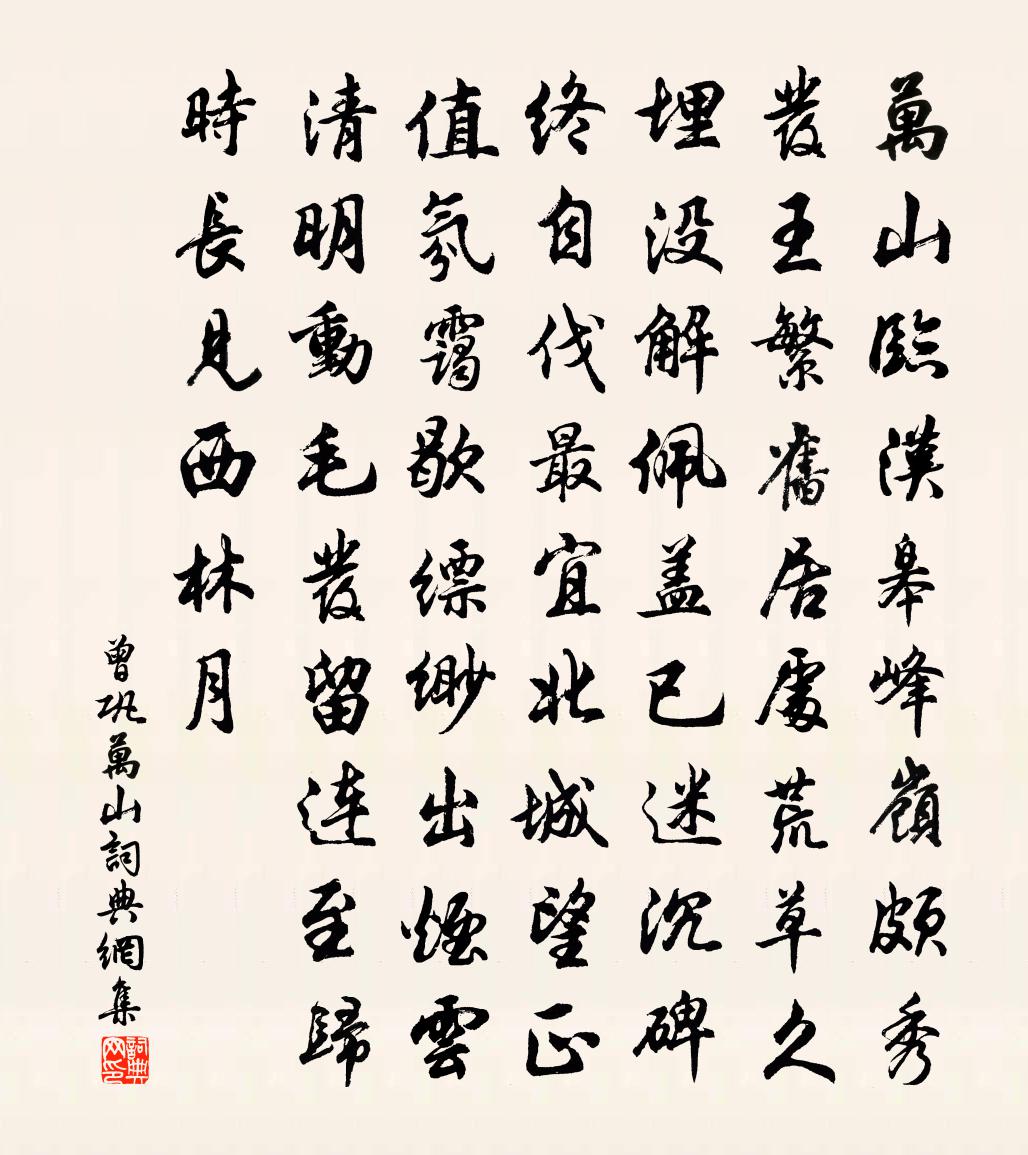 萬山臨漢皋峰嶺頗秀
發王繁舊居處荒草久
埋没解佩盖已迷沉碑
终自伐最宜北城望正
值氛靄歇缥缈出煙雲
清明動毛發留连至歸
時長見西林月
曾巩萬山詞典網集
詞典网印